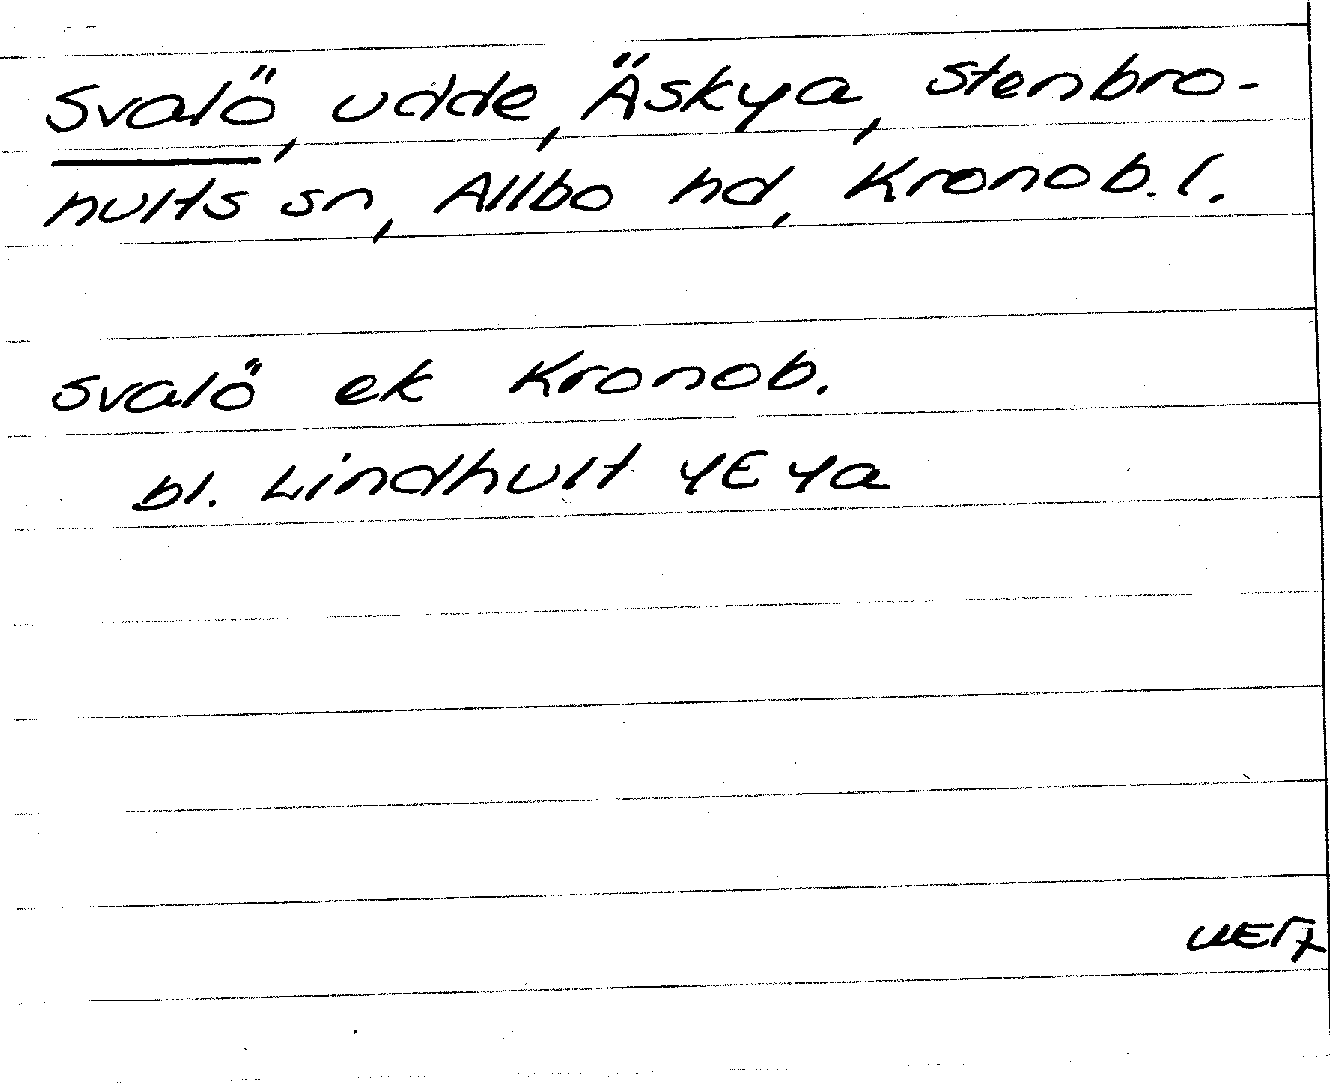 Svalö, udde, Äskya, Stenbro-
hults sn, Allbo hd, Kronob. l.
Svalö ek Kronob.
bl. Lindhult 4E 4a